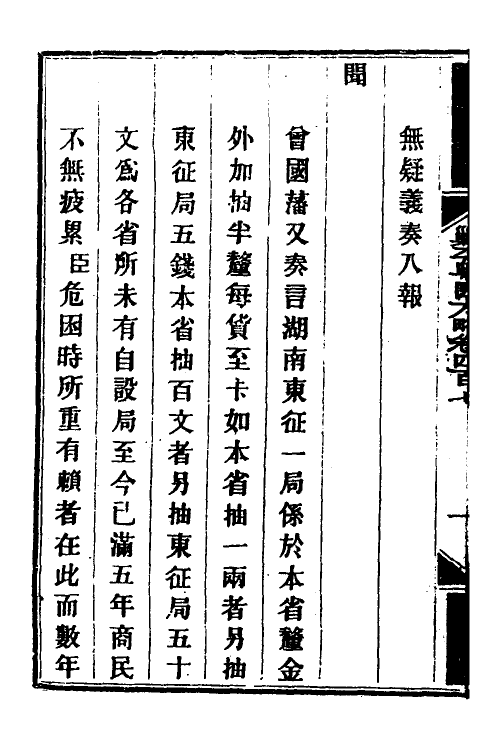 無疑義奏入報
聞
曾國藩又奏言湖南東征一局係於本省釐金
外加抽半釐每貨至卡如本省抽一兩者另抽
東征局五錢本省抽百文者另抽東征局五十
文爲各省所未有自設局至今已滿五年商民
不無疲累臣危困時所重有賴者在此而數年